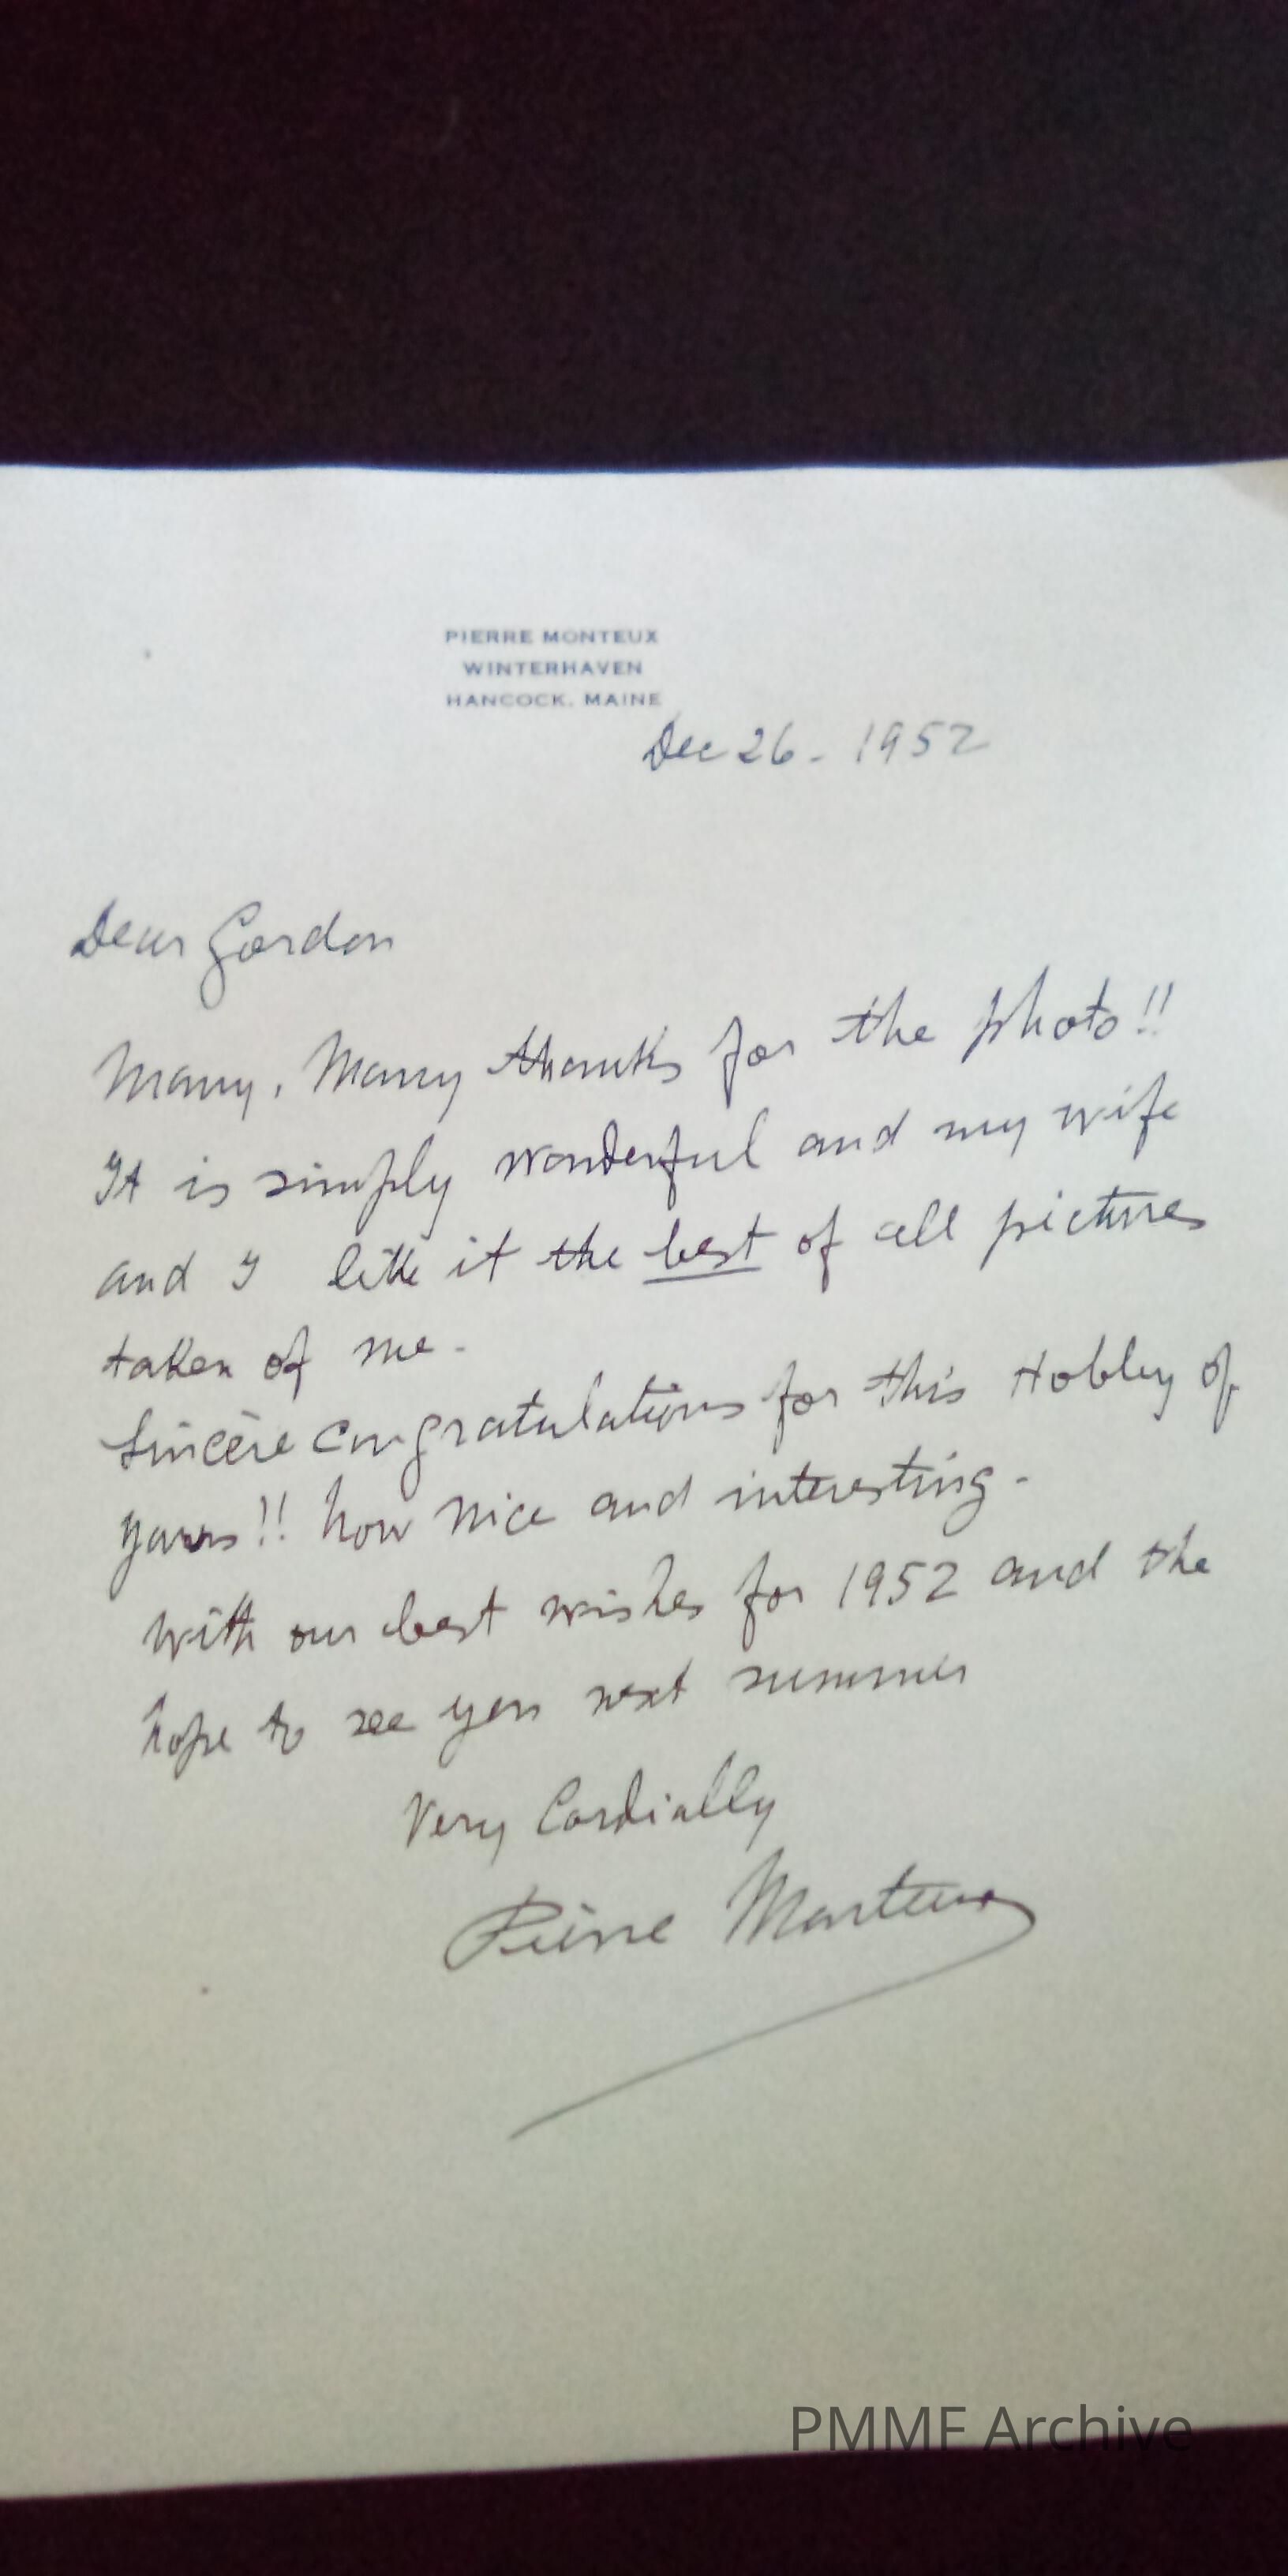 PIERRE MONTEUX
WINTERHAVEN
HANCOCK, MAINE
Dec 26 - 1952
Dear Gordon
Many, Many thanks for the photo!!
It is simply wonderful and my wife
and I like it the best of all pictures
taken of me -
Sincère congratulations for this Hobby of
yours!! how nice and interesting -
with our best wishes for 1952 and the
hope to see you next summer
Very Cordially
Pierre Monteux
PMMF Archive